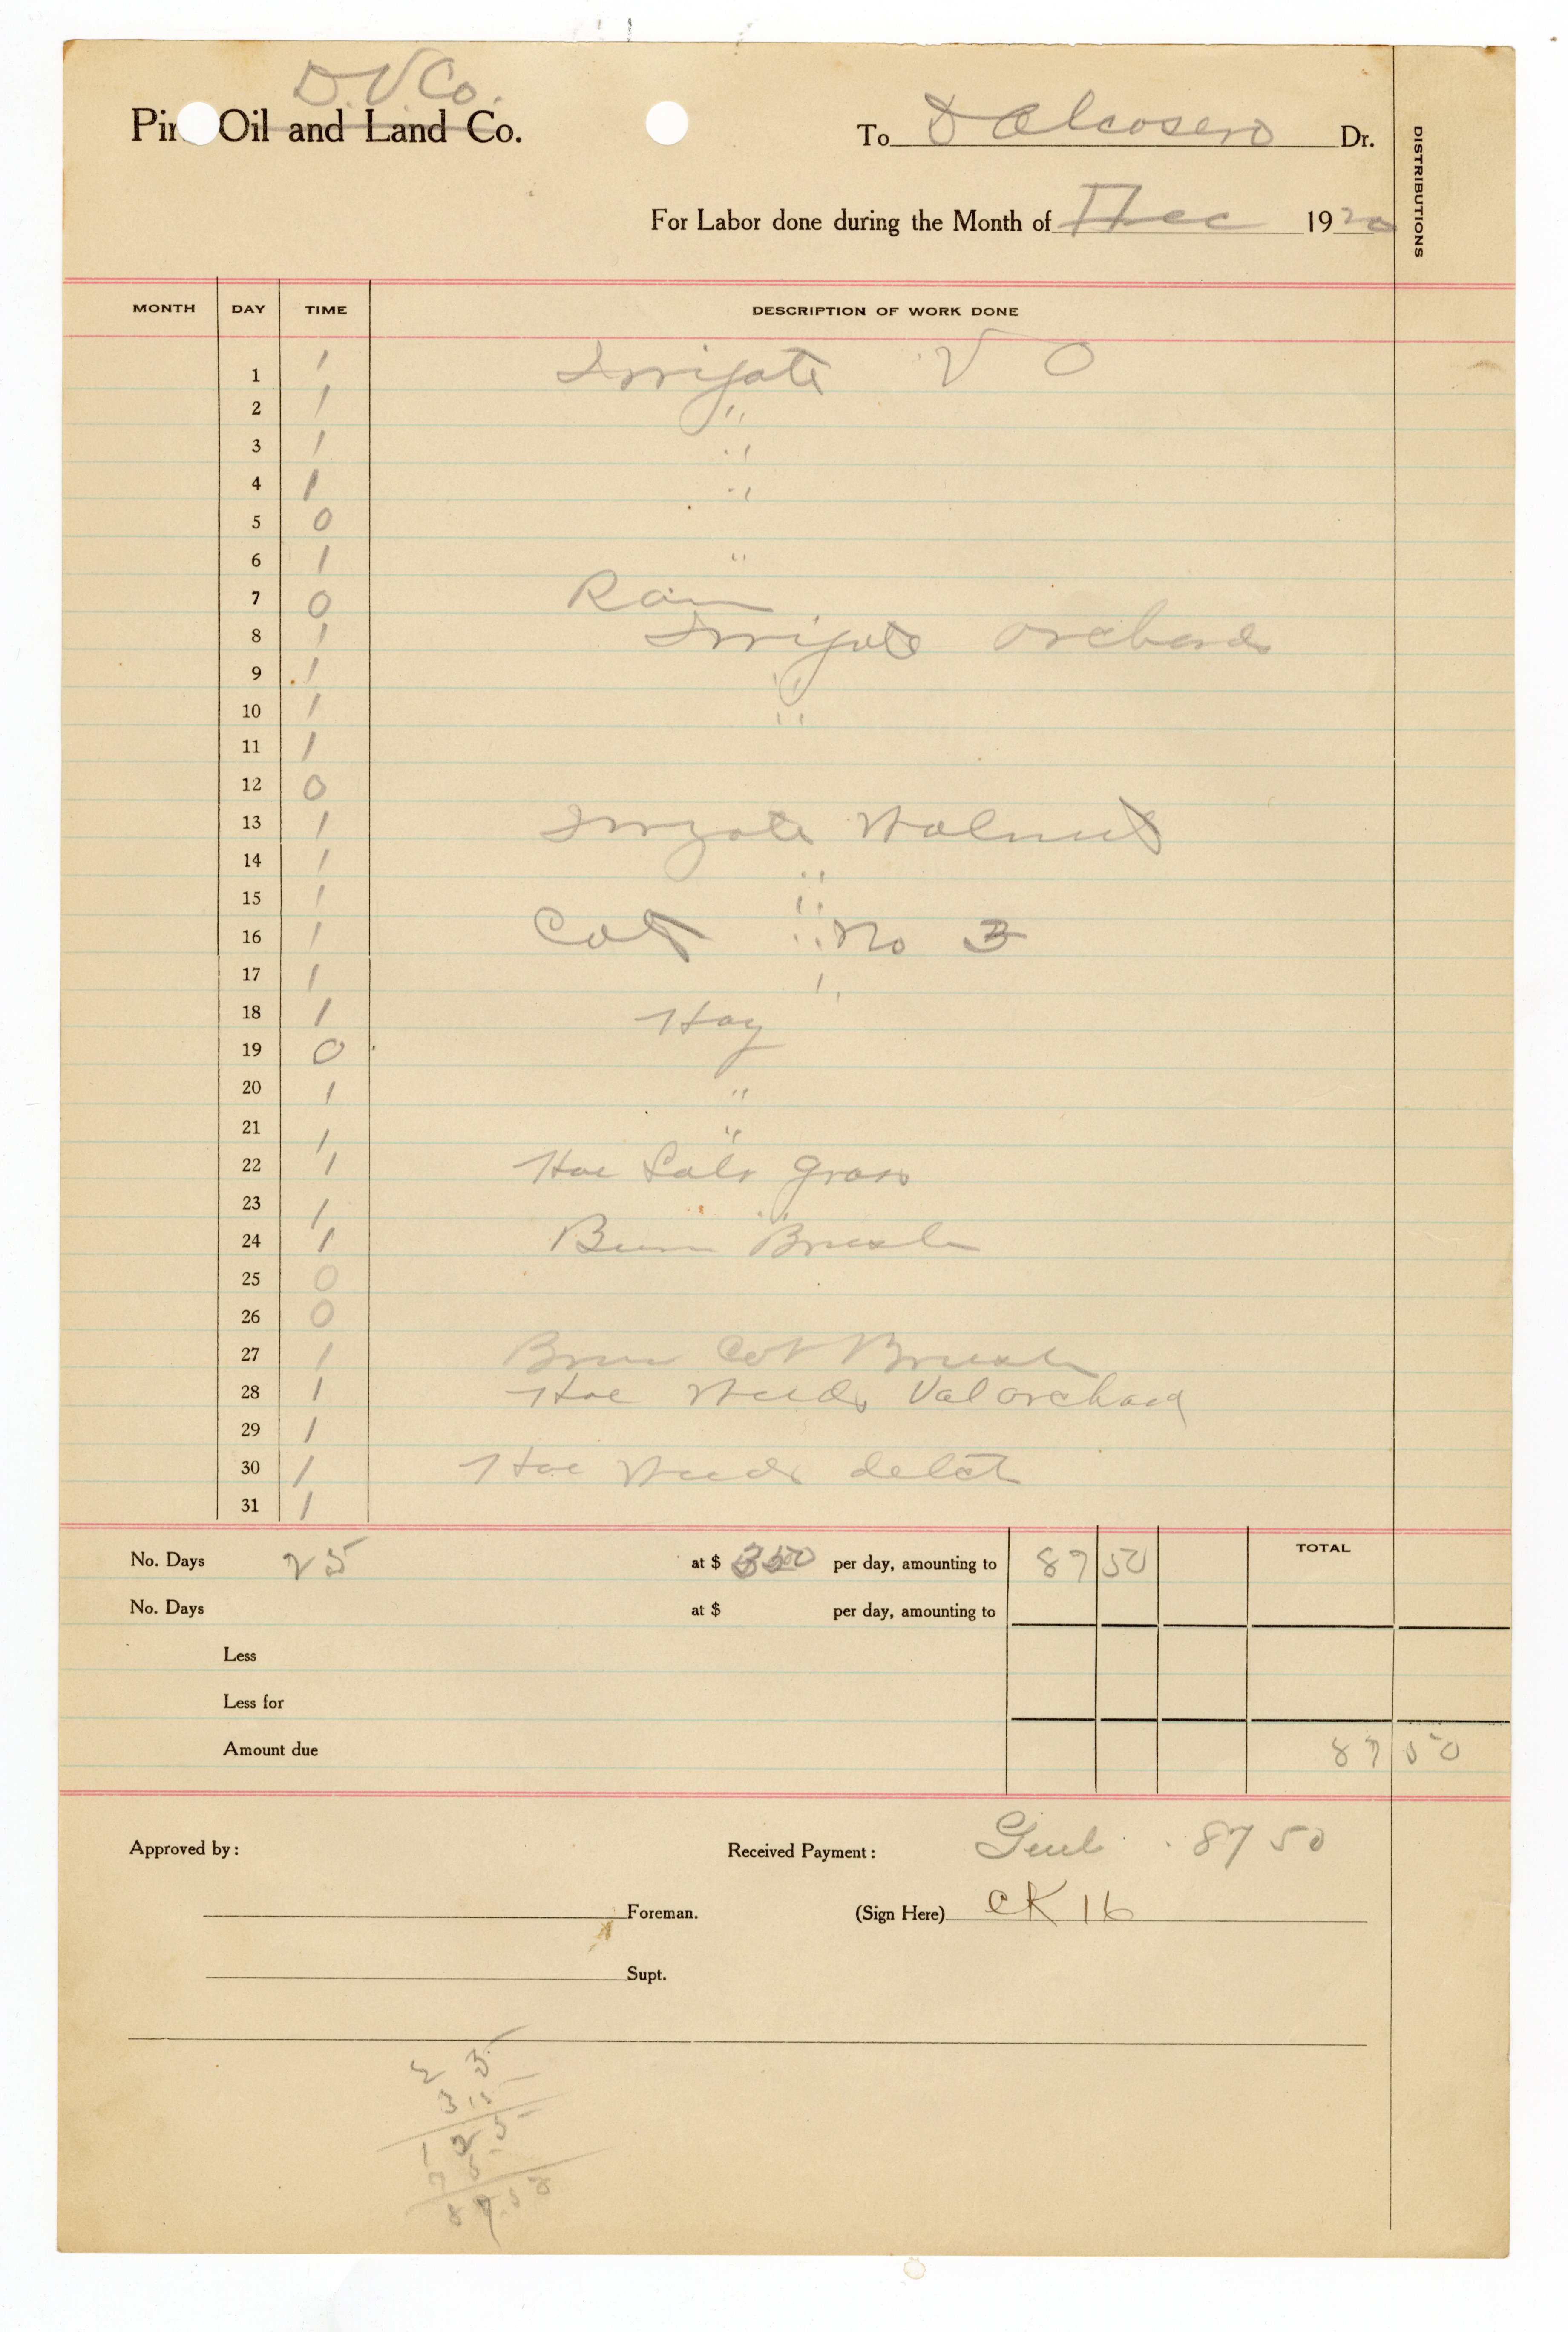 D. V Co.
Pir Oil and Land Co.
To D Alcosero Dr.
DISTRIBUTIONS
For Labor done during the Month of Dec 1920
MONTH DAY TIME DESCRIPTION OF WORK DONE
1 1 Irrigate V O
2 1 "
3 1 "
4 1 "
5 0
6 1 "
7 0 Rain
8 1 Irrigate orchards
9 1 "
10 1 "
11 1
12 0
13 1 Irrigate Walnut
14 1 "
15 1 "
16 1 Cot " No 3
17 1 "
18 1 Hay
19 0
20 1 "
21 1 "
22 1 Hoe Salt Grass
23 1 "
24 1 Burn Brush
25 0
26 0
27 1 Burn Cot Brush
28 1 Hoe Weeds Val orchard
29 1
30 1 Hoe Weeds
31 1
No. Days 25 at $ 3.50 per day, amounting to 87 50 TOTAL
No. Days at $ per day, amounting to
Less
Less for
Amount due 87 50
Approved by: Received Payment: 87 50
Foreman. (Sign Here) CK 16
Supt.
2 5
3.5
1 2 5
7 5
8 7.5 0